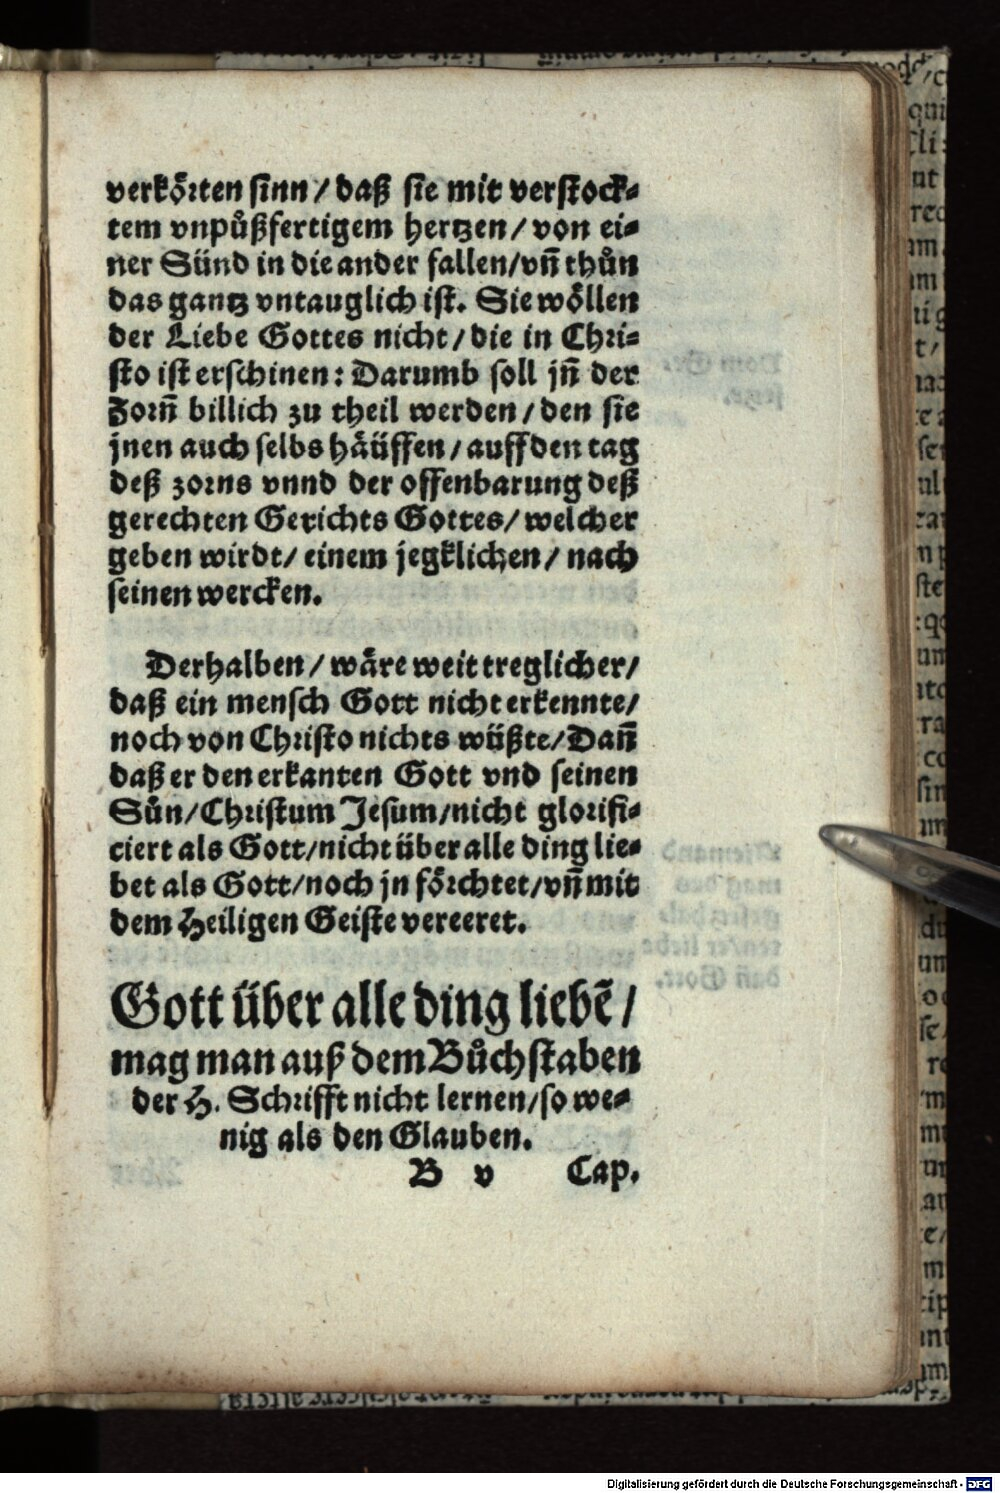 verkörten sinn / daß sie mit verstock⸗
tem vnpůßfertigem hertzen / von ei⸗
ner Sünd in die ander fallen / vñ thůn
das gantz vntauglich ist. Sie wöllen
der Liebe Gottes nicht / die in Chri⸗
sto ist erschinen: Darumb soll jñ der
Zorñ billich zu theil werden / den sie
jnen auch selbs häüffen / auff den tag
deß zorns vnnd der offenbarung deß
gerechten Gerichts Gottes / welcher
geben wirdt / einem jegklichen / nach
seinen wercken.
Derhalben / wäre weit treglicher /
daß ein mensch Gott nicht erkennte /
noch von Christo nichts wüßte / Dañ
daß er den erkanten Gott vnd seinen
Sůn / Christum Jesum / nicht glorifi⸗
ciert als Gott / nicht über alle ding lie⸗
bet als Gott / noch jn förchtet / vñ mit
dem Heiligen Geiste vereeret.
Gott über alle ding liebẽ /
mag man auß dem Bůchstaben
der H. Schrifft nicht lernen / so we⸗
nig als den Glauben.
B v Cap.
Digitalisierung gefördert durch die Deutsche Forschungsgemeinschaft - DFG